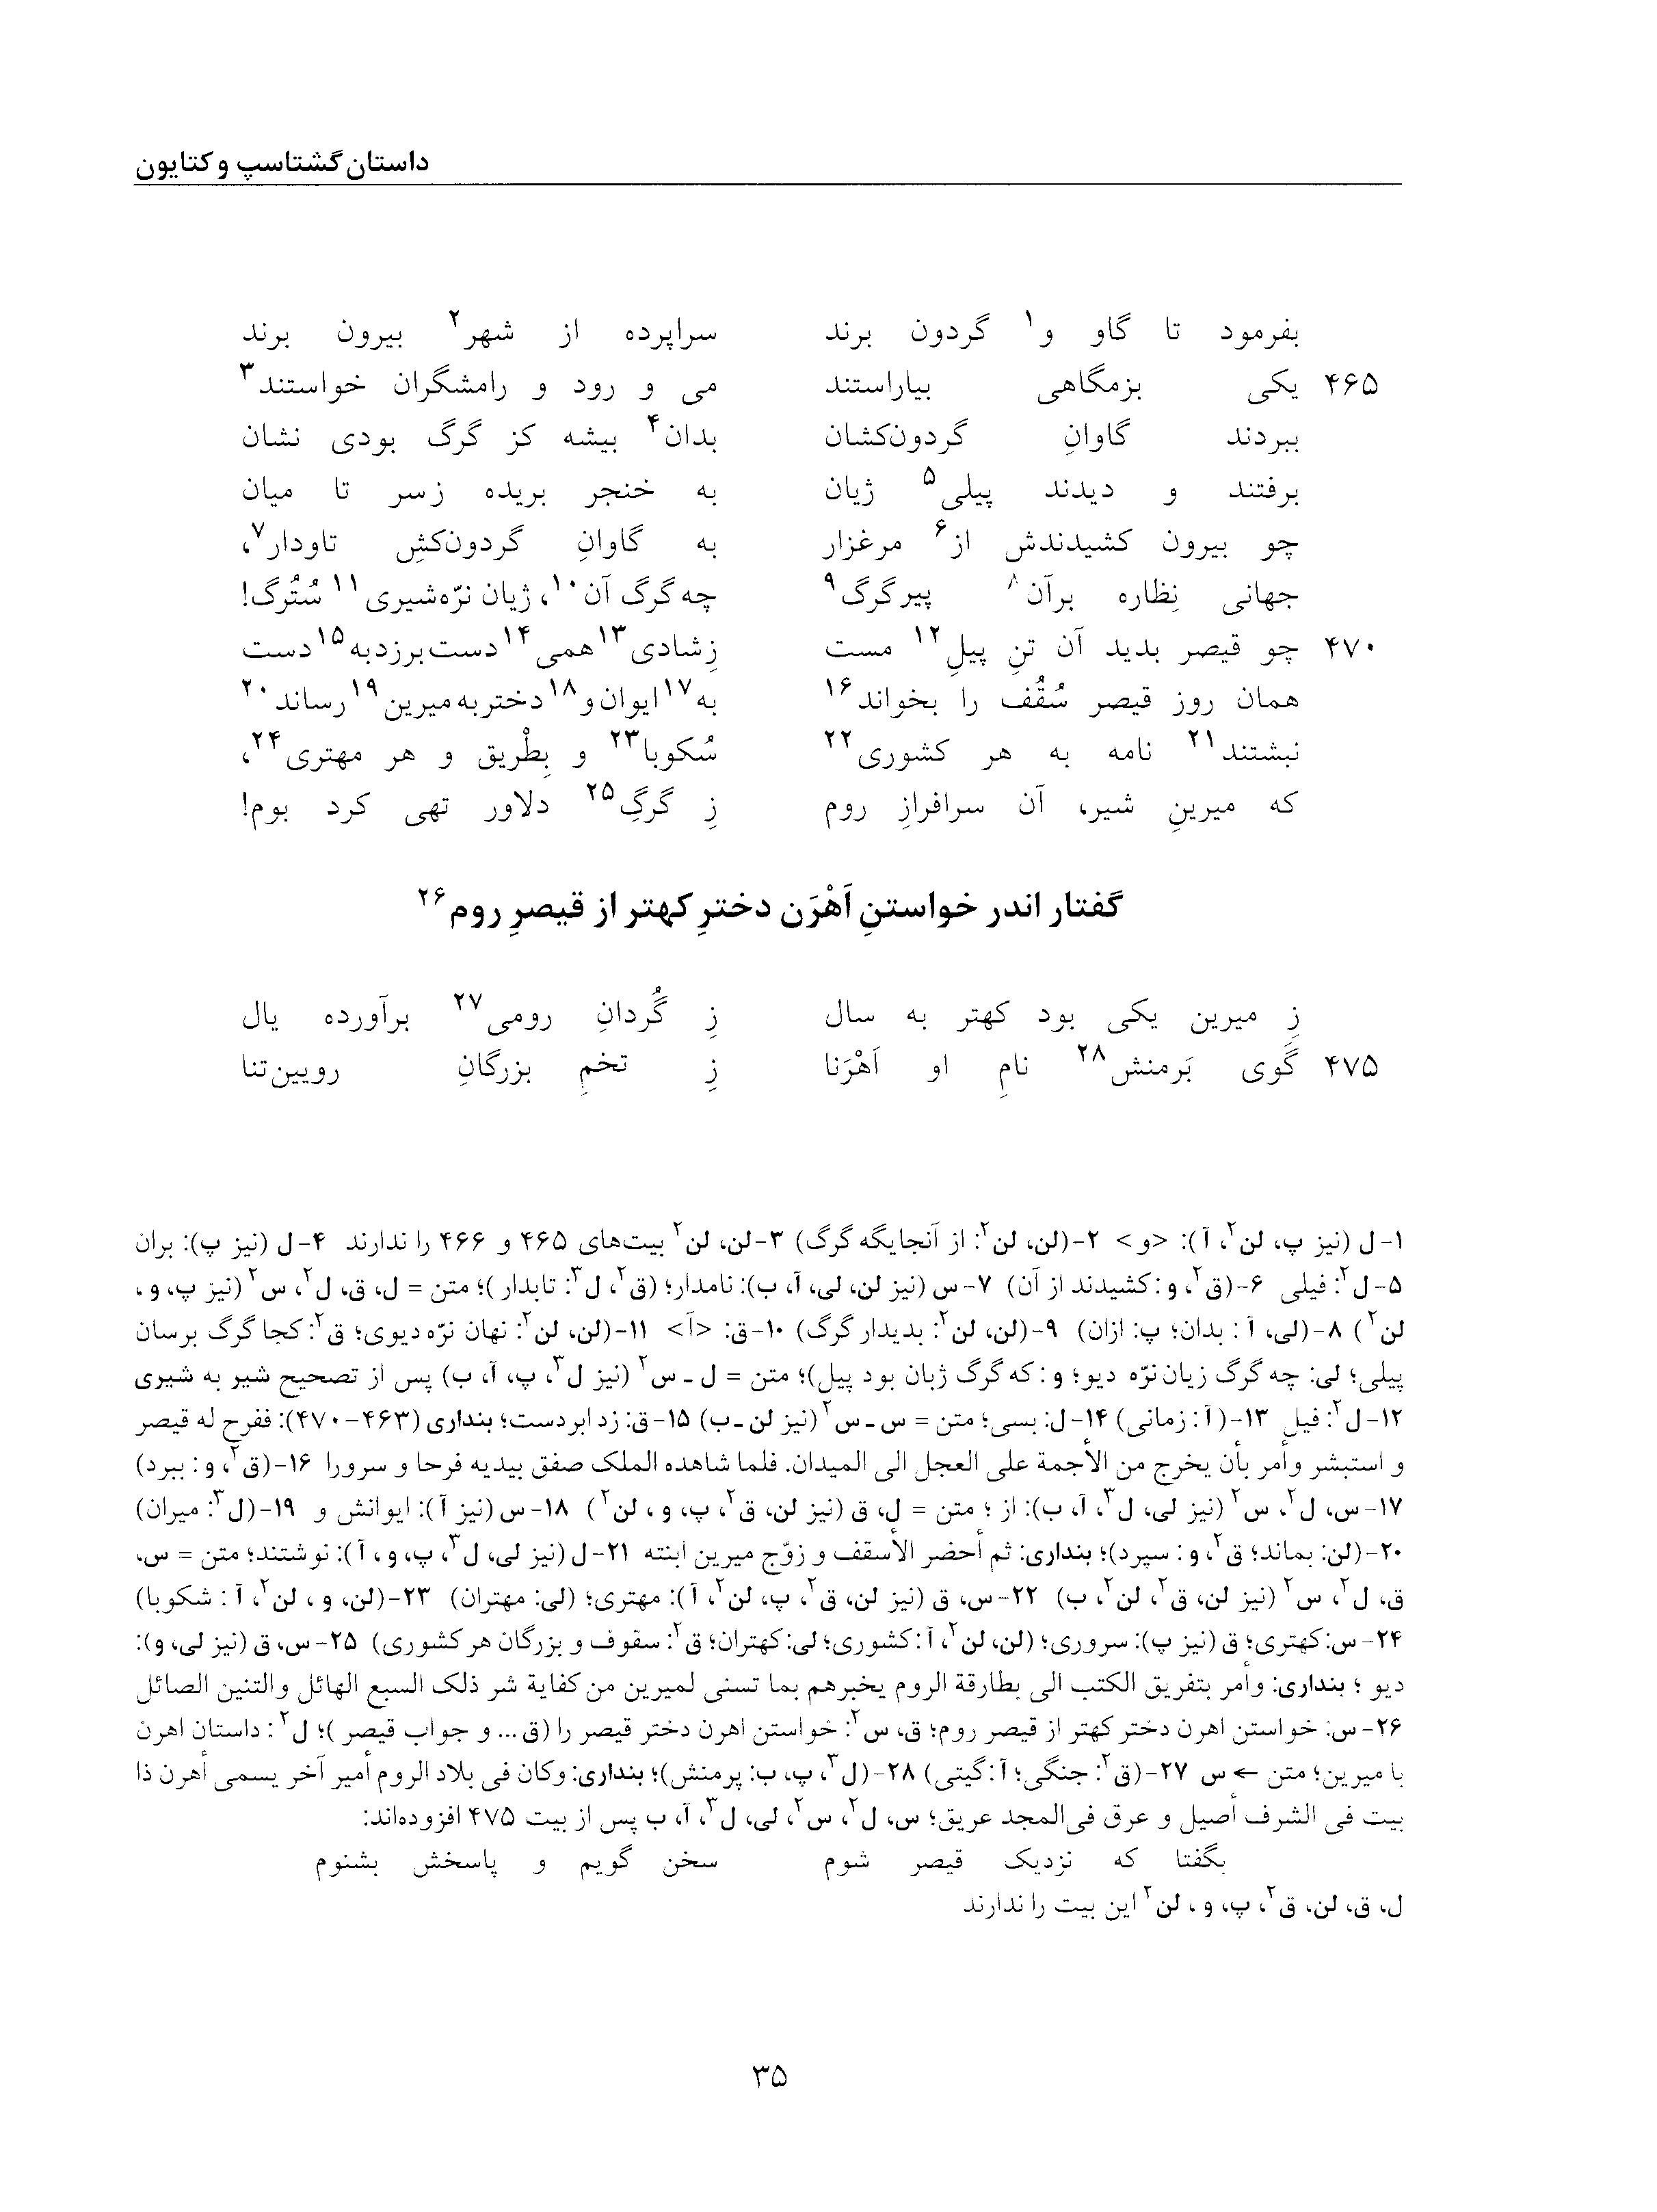 داستان گشتاسپ و کتایون
بفرمود تا گاو و۱ گردون برند سراپرده از شهر۲ بیرون برند
۴۶۵ یکی بزمگاهی بیاراستند می و رود و رامشگران خواستند۳
ببردند گاوانِ گردون‌کشان بدان۴ بیشه کز گرگ بودی نشان
برفتند و دیدند پیلی۵ ژیان به خنجر بریده زسر تا میان
چو بیرون کشیدندش از۶ مرغزار به گاوانِ گردون‌کشِ تاودار۷،
جهانی نِظاره برآن۸ پیر گرگ۹ چه گرگ آن۱۰، ژیان نرّه‌شیری۱۱ سُتُرگ!
۴۷۰ چو قیصر بدید آن تنِ پیلِ۱۲ مست زِ شادی۱۳ همی۱۴ دست برزد به۱۵ دست
همان روز قیصر سُقُف را بخواند۱۶ به۱۷ ایوان و۱۸ دختر به میرین۱۹ رساند۲۰
نبشتند۲۱ نامه به هر کشوری۲۲ سُکوبا۲۳ و بِطْریق و هر مهتری۲۴،
که میرینِ شیر، آن سرافرازِ روم زِ گرگِ۲۵ دلاور تهی کرد بوم!
گفتار اندر خواستنِ اَهْرَن دخترِ کهتر از قیصرِ روم۲۶
زِ میرین یکی بود کهتر به سال زِ گُردانِ رومی۲۷ برآورده یال
۴۷۵ گَوی بَرمنش۲۸ نامِ او اَهْرَنا زِ تخمِ بزرگانِ رویین‌تنا
۱-ل (نیز پ، لن۲، آ): <و> ۲-(لن، لن۲: از آنجایگه گرگ) ۳-لن، لن۲ بیت‌های ۴۶۵ و ۴۶۶ را ندارند ۴-ل (نیز پ): بران
۵-ل۲: فیلی ۶-(ق۲، و: کشیدند از آن) ۷-س (نیز لن، لی، آ، ب): نامدار؛ (ق۲، ل۳: تابدار)؛ متن = ل، ق، ل۲، س۲ (نیز پ، و،
لن۲) ۸-(لی، آ: بدان؛ پ: ازان) ۹-(لن، لن۲: بدیدار گرگ) ۱۰-ق: <آ> ۱۱-(لن، لن۲: نهان نرّه دیوی؛ ق۲: کجا گرگ برسان
پیلی؛ لی: چه گرگ زیان نرّه دیو؛ و: که گرگ ژبان بود پیل)؛ متن = ل ـ س۲ (نیز ل۳، پ، آ، ب) پس از تصحیح شیر به شیری
۱۲-ل۲: فیل ۱۳-(آ: زمانی) ۱۴-ل: بسی؛ متن = س ـ س۲ (نیز لن ـ ب) ۱۵-ق: زد ابر دست؛ بنداری (۴۶۳-۴۷۰): ففرح له قیصر
و استبشر وأمر بأن یخرج من الأجمة علی العجل الی المیدان. فلما شاهده الملک صفق بیدیه فرحا و سرورا ۱۶-(ق۲، و: ببرد)
۱۷-س، ل۲، س۲ (نیز لی، ل۳، آ، ب): از؛ متن = ل، ق (نیز لن، ق۲، پ، و، لن۲) ۱۸-س (نیز آ): ایوانش و ۱۹-(ل۳: میران)
۲۰-(لن: بماند؛ ق۲، و: سپرد)؛ بنداری: ثم أحضر الأسقف و زوّج میرین ابنته ۲۱-ل (نیز لی، ل۳، پ، و، آ): نوشتند؛ متن = س،
ق، ل۲، س۲ (نیز لن، ق۲، لن۲، ب) ۲۲-س، ق (نیز لن، ق۲، پ، لن۲، آ): مهتری؛ (لی: مهتران) ۲۳-(لن، و، لن۲، آ: شکوبا)
۲۴-س: کهتری؛ ق (نیز پ): سروری؛ (لن، لن۲، آ: کشوری؛ لی: کهتران؛ ق۲: سقوف و بزرگان هر کشوری) ۲۵-س، ق (نیز لی، و):
دیو؛ بنداری: وأمر بتفریق الکتب الی بطارقة الروم یخبرهم بما تسنی لمیرین من کفایة شر ذلک السبع الهائل والتنین الصائل
۲۶-س: خواستن اهرن دختر کهتر از قیصر روم؛ ق، س۲: خواستن اهرن دختر قیصر را (ق... و جواب قیصر)؛ ل۲: داستان اهرن
با میرین؛ متن ← س ۲۷-(ق۲: جنگی؛ آ: گیتی) ۲۸-(ل۳، پ، ب: پرمنش)؛ بنداری: وکان فی بلاد الروم أمیر آخر یسمی أهرن ذا
بیت فی الشرف أصیل و عرق فی‌المجد عریق؛ س، ل۲، س۲، لی، ل۳، آ، ب پس از بیت ۴۷۵ افزوده‌اند:
بگفتا که نزدیک قیصر شوم سخن گویم و پاسخش بشنوم
ل، ق، لن، ق۲، پ، و، لن۲ این بیت را ندارند
۳۵